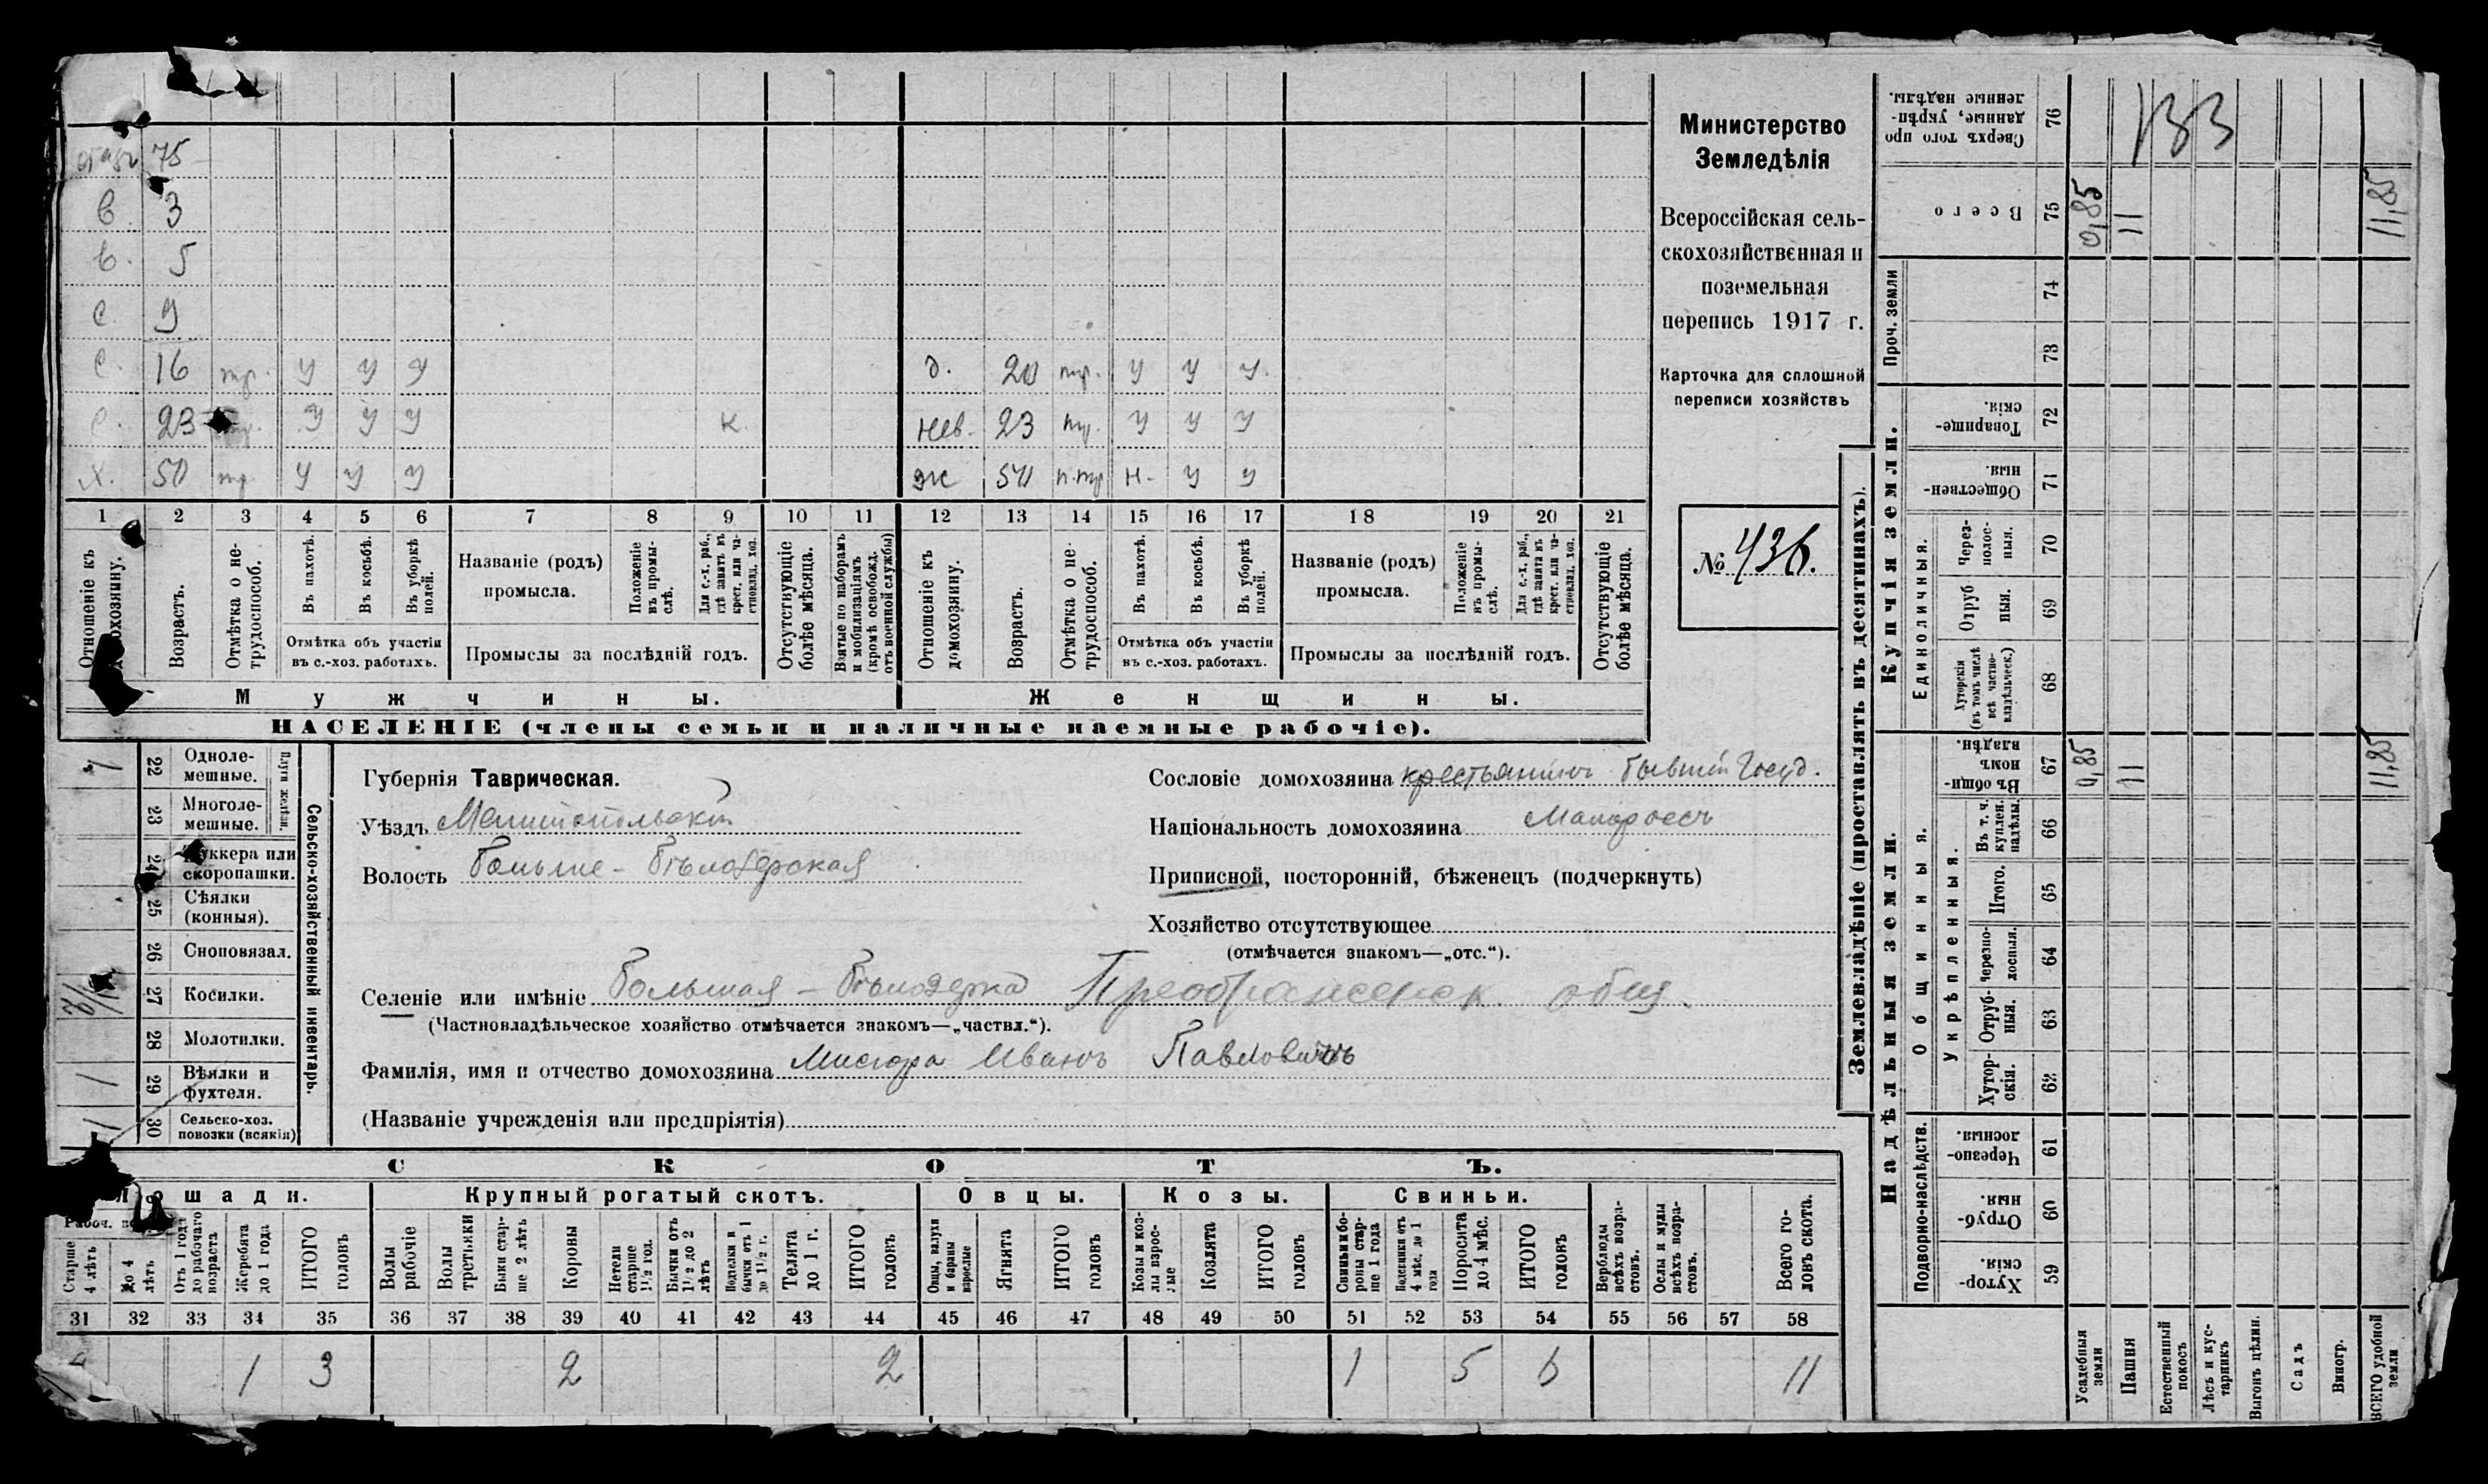 отец 75
в. 3
в. 5
с. 9
с. 16 тр. у у у д. 20 тр. у у у.
с. 23 тр. у у у к нев. 23 тр. у у у
х. 50 тр у у у ж 50 п.тр н. у у
1 2 3 4 5 6 7 8 9 10 11 12 13 14 15 16 17 18 19 20 21
Отношеніе къ домохозяину.
Возрастъ.
Отмѣтка о нетрудоспособ.
Въ пахотѣ.
Въ косьбѣ.
Въ уборкѣ полей.
Отмѣтка объ участіи въ с.-хоз. работахъ.
Названіе (родъ) промысла.
Положеніе въ промыслѣ.
Для с.-х. раб., гдѣ занятъ въ крест. или частновлад. хоз.
Промыслы за послѣдній годъ.
Отсутствующіе болѣе мѣсяца.
Взятые по наборамъ и мобилизаціямъ (кромѣ освобожд. отъ военной службы)
Отношеніе къ домохозяину.
Возрастъ.
Отмѣтка о нетрудоспособ.
Въ пахотѣ.
Въ косьбѣ.
Въ уборкѣ полей.
Отмѣтка объ участіи въ с.-хоз. работахъ.
Названіе (родъ) промысла.
Положеніе въ промыслѣ.
Для с.-х. раб., гдѣ занята въ крест. или частновлад. хоз.
Промыслы за послѣдній годъ.
Отсутствующіе болѣе мѣсяца.
Мужчины. Женщины.
НАСЕЛЕНІЕ (члены семьи и наличные наемные рабочіе).
Министерство
Земледѣлія
Всероссійская сель-
скохозяйственная и
поземельная
перепись 1917 г.
Карточка для сплошной
переписи хозяйствъ
№ 436.
Сельско-хозяйственный инвентарь.
Плуги желѣзн.
22 Однолемешные. 1
23 Многолемешные.
24 Буккера или скоропашки.
25 Сѣялки (конныя).
26 Сноповязал.
27 Косилки.
28 Молотилки.
29 Вѣялки и фухтеля. 1
30 Сельско-хоз. повозки (всякія) 1
Губернія Таврическая.
Уѣздъ Мелитопольскій
Волость Больше-Бѣлозерская
Сословіе домохозяина крестьянинъ бывшій Госуд.
Національность домохозяина Малороссъ
Приписной, посторонній, бѣженецъ (подчеркнуть)
Хозяйство отсутствующее
(отмѣчается знакомъ—„отс.“).
Селеніе или имѣніе Большая-Бѣлозерка Преображенск. общ.
(Частновладѣльческое хозяйство отмѣчается знакомъ—„частвл.“).
Фамилія, имя и отчество домохозяина Мисюра Иванъ Павловичъ
(Названіе учрежденія или предпріятія)
СКОТЪ.
Лошади. Крупный рогатый скотъ. Овцы. Козы. Свиньи.
Старше 4 лѣтъ
До 4 лѣтъ
Отъ 1 года до рабочаго возраста
Жеребята до 1 года
ИТОГО головъ
Волы рабочіе
Волы третьяки
Быки старше 2 лѣтъ
Коровы
Нетели старше 1½ год.
Бычки отъ 1½ до 2 лѣтъ
Подтелки и бычки отъ 1 до 1½ г.
Телята до 1 г.
ИТОГО головъ
Овцы, валухи и бараны взрослые
Ягнята
ИТОГО головъ
Козы и козлы взрослые
Козлята
ИТОГО головъ
Свиньи и боровы старше 1 года
Подсвинки отъ 4 мѣс. до 1 года
Поросята до 4 мѣс.
ИТОГО головъ
Верблюды всѣхъ возрастовъ.
Ослы и мулы всѣхъ возрастовъ.
Всего головъ скота.
31 32 33 34 35 36 37 38 39 40 41 42 43 44 45 46 47 48 49 50 51 52 53 54 55 56 57 58
1 3 2 2 1 5 6 11
Землевладѣніе (проставлять въ десятинахъ).
Сверхъ того проданные, укрѣпленные надѣлы. 76 133
Всего 75 0,85 11 11,85
Проч. земли 74 73
Купчія земли.
Товарищескія. 72
Общественныя. 71
Единоличныя.
Черезполосныя. 70
Отрубныя. 69
Хуторскія (въ томъ числѣ всѣ частновладѣльческ.) 68
Надѣльныя земли.
Общинныя.
Въ общинномъ владѣн. 67 0,85 11 11,85
Укрѣпленныя.
Въ т. ч. куплен. надѣлы. 66
Итого. 65
Черезполосныя. 64
Отрубныя. 63
Хуторскія. 62
Подворно-наслѣдств.
Черезполосныя. 61
Отрубныя. 60
Хуторскія. 59
Усадебныя земли
Пашня
Естественный покосъ
Лѣсъ и кустарникъ
Выгонъ цѣлин.
Садъ
Виногр.
ВСЕГО удобной земли